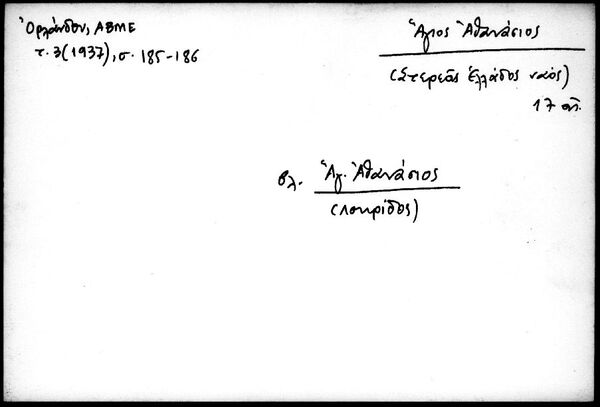 Ὀρλάνδου, ΑΒΜΕ
τ. 3 (1937), σ. 185-186
Ἅγιος Ἀθανάσιος
(Στερεᾶς Ἑλλάδος ναός)
17 αἰ.
βλ. Ἅγ. Ἀθανάσιος
(Λοκρίδος)